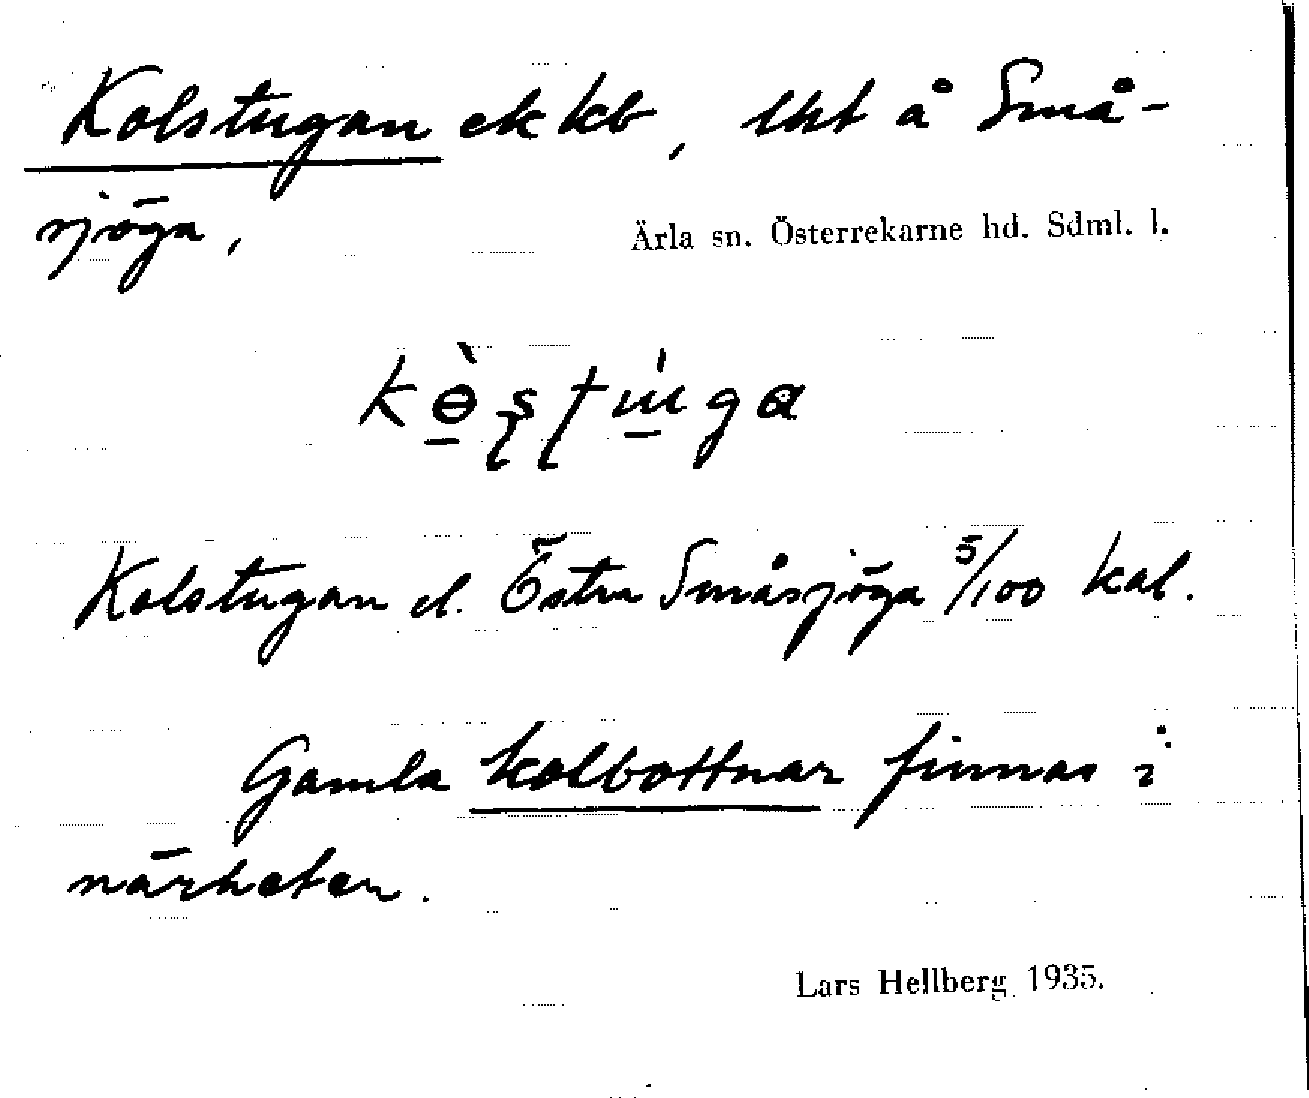 Kolstugan ek kb, lht å Små-
sjöga,
Ärla sn. Österrekarne hd. Sdml. l.
Kolstugan el. Östra Småsjöga 5/100 kal.
Gamla kolbottnar finnas i
närheten.
Lars Hellberg 1935.